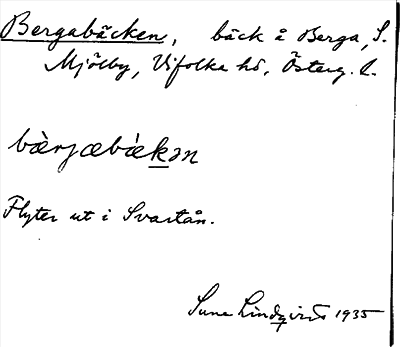 Bergabäcken, bäck å Berga, S.
Mjölby, Vifolka hd, Österg. l.
bæ̀rjæbæ̀kən
Flyter ut i Svartån.
Sune Lindqvist 1935